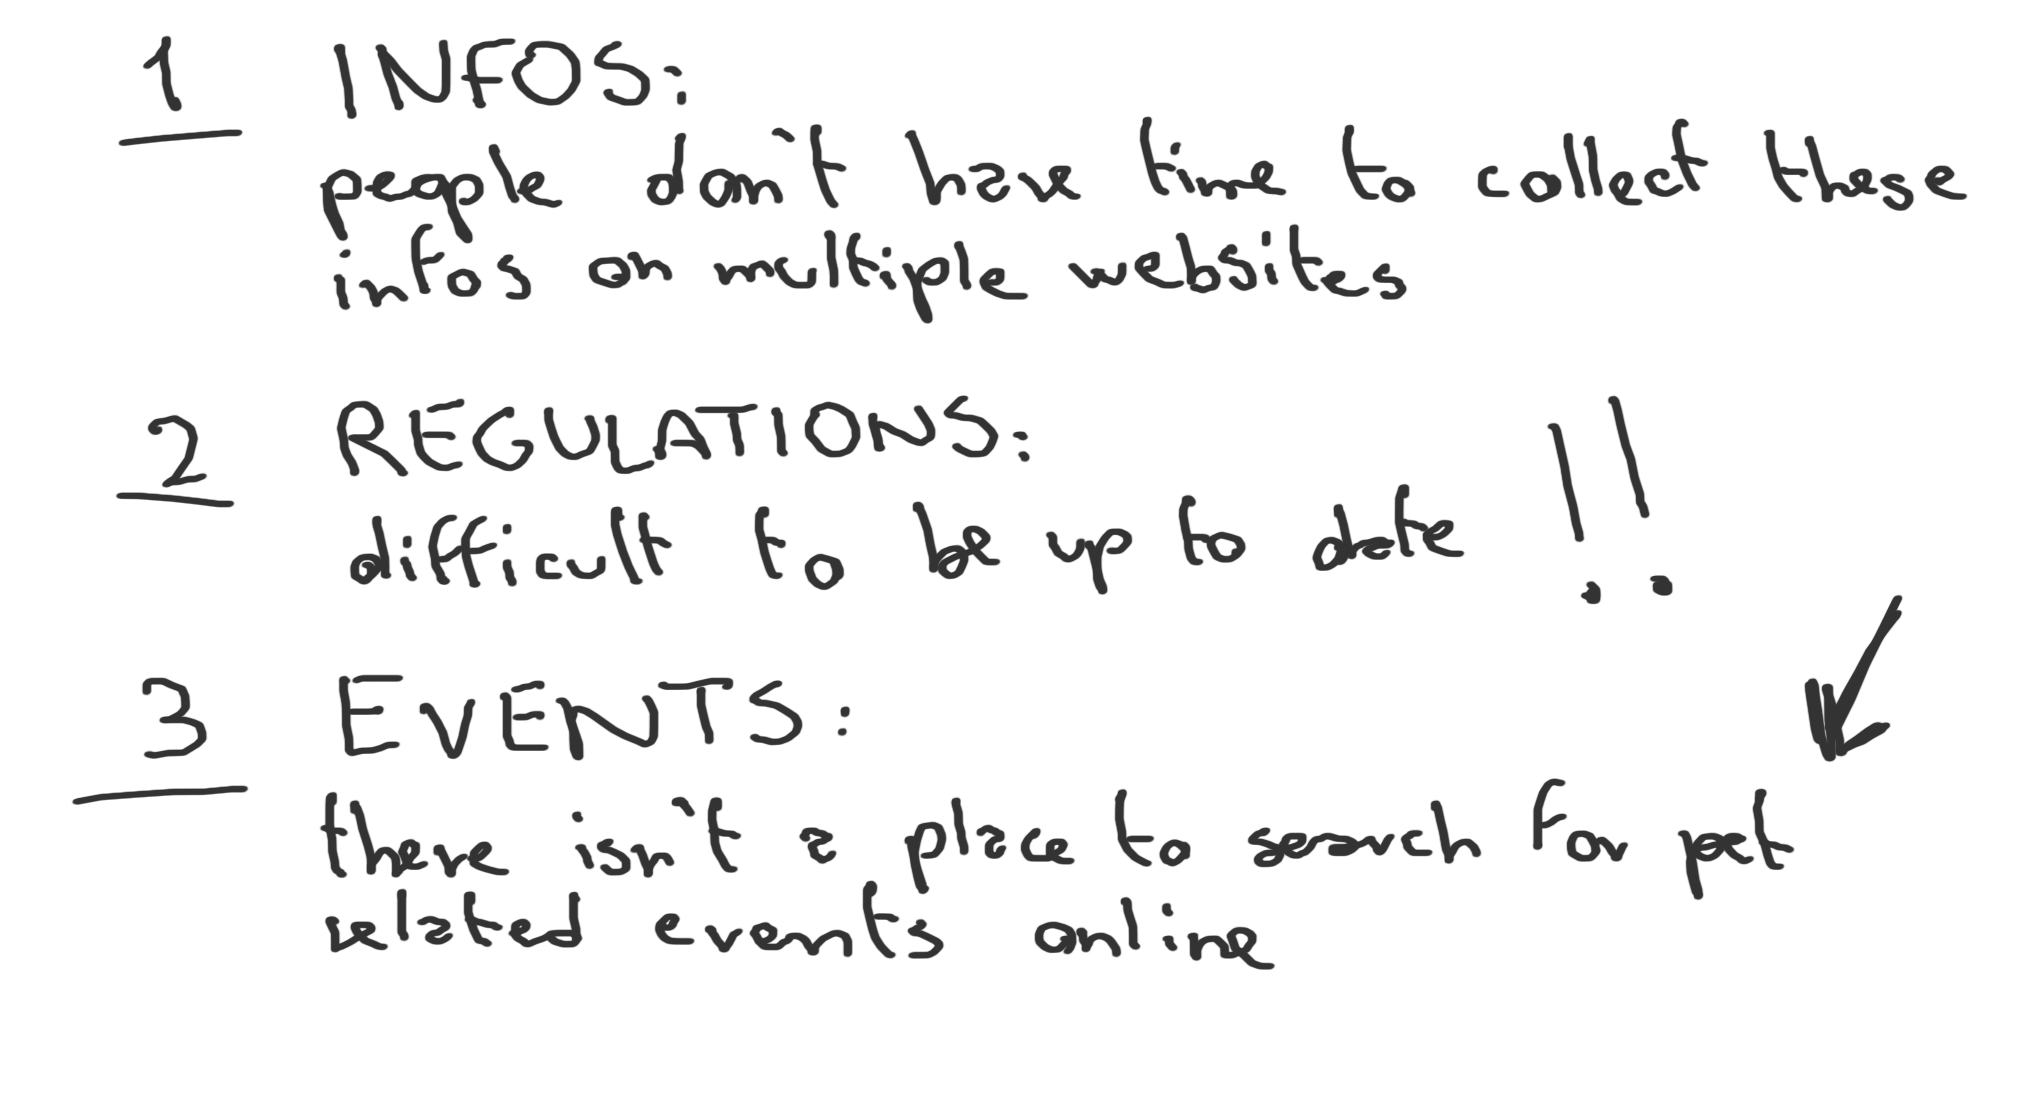 1 INFOS:
people don't have time to collect these
infos on multiple websites
2 REGULATIONS:
difficult to be up to date !!
3 EVENTS:
there isn't a place to search for pet
related events online